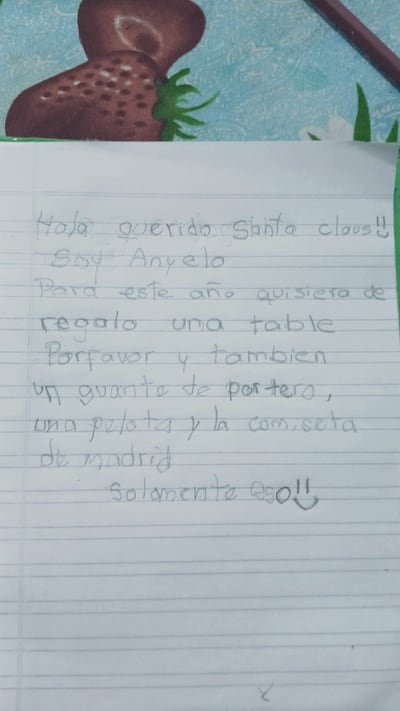 Hola querido Santa claus!!
Soy Anyelo
Para este año quisiera de
regalo una table
Porfavor y tambien
un guante de portero,
una pelota y la comiseta
de madrid
solamente eso!!